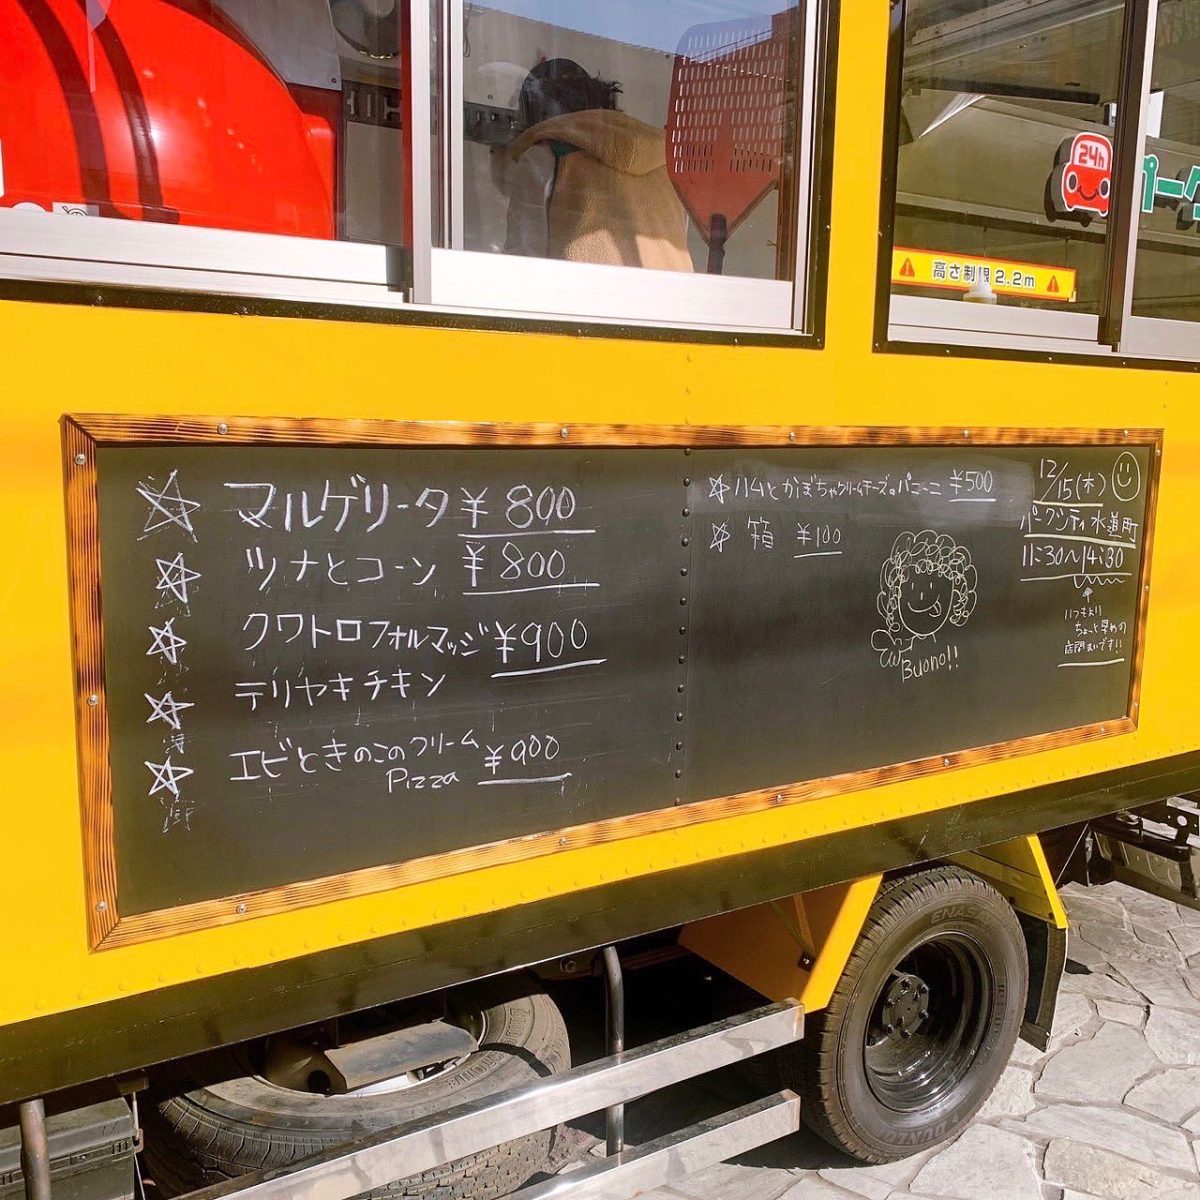 24h
パーク
高さ制限2.2m
マルゲリータ ¥800
ツナとコーン ¥800
クワトロフォルマッジ ¥900
テリヤキチキン
エビときのこのクリーム
Pizza ¥900
ハムとかぼちゃクリームチーズのパニーニ ¥500
箱 ¥100
Buono!!
12/15(木)
パークシティ水道町
11:30~14:30
いつもより
ちょっと早めの
店閉まいです!!